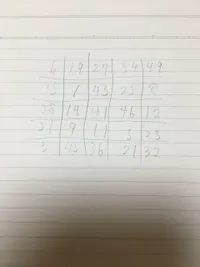 6 19 27 34 49
1 43 25 8
28 14 41 46 12
31 9 11 3 23
5 45 36 21 32